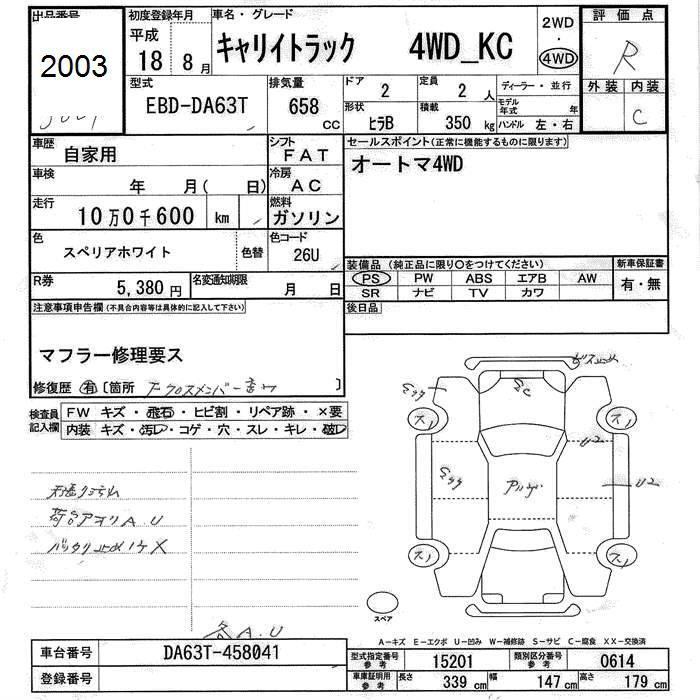 出品番号 初度登録年月 車名・グレード 2WD・4WD 評価点
2003 平成 18 8月 キャリイトラック 4WD_KC R
型式 排気量 ドア 定員 ディーラー・並行 外装 内装
EBD-DA63T 658 cc 2 2 人 モデル年式 年 C
形状 ヒラB 積載 350 kg ハンドル 左・右
車歴 自家用 シフト FAT セールスポイント(正常に機能するものに限ります)
車検 年 月( 日) 冷房 AC オートマ4WD
走行 10万0千600 km 燃料 ガソリン
色 スペリアホワイト 色替 色コード 26U
装備品(純正品に限り○をつけてください) 新車保証書
PS PW ABS エアB AW 有・無
SR ナビ TV カワ
R券 5,380円 名変通知期限 月 日
注意事項申告欄(不具合内容等は具体的に記入して下さい) 後日品
マフラー修理要ス
修復歴 有 [箇所 ]
検査員記入欄 FW キズ・飛石・ヒビ割・リペア跡・×要
内装 キズ・汚レ・コゲ・穴・スレ・キレ・破レ
荷台アオリA.U
A.U
U2
U2
スペア
A-キズ E-エクボ U-凹み W-補修跡 S-サビ C-腐食 XX-交換済
車台番号 DA63T-458041 型式指定番号 参考 15201 類別区分番号 参考 0614
登録番号 車庫証明用 参考 長さ 339 cm 幅 147 cm 高さ 179 cm